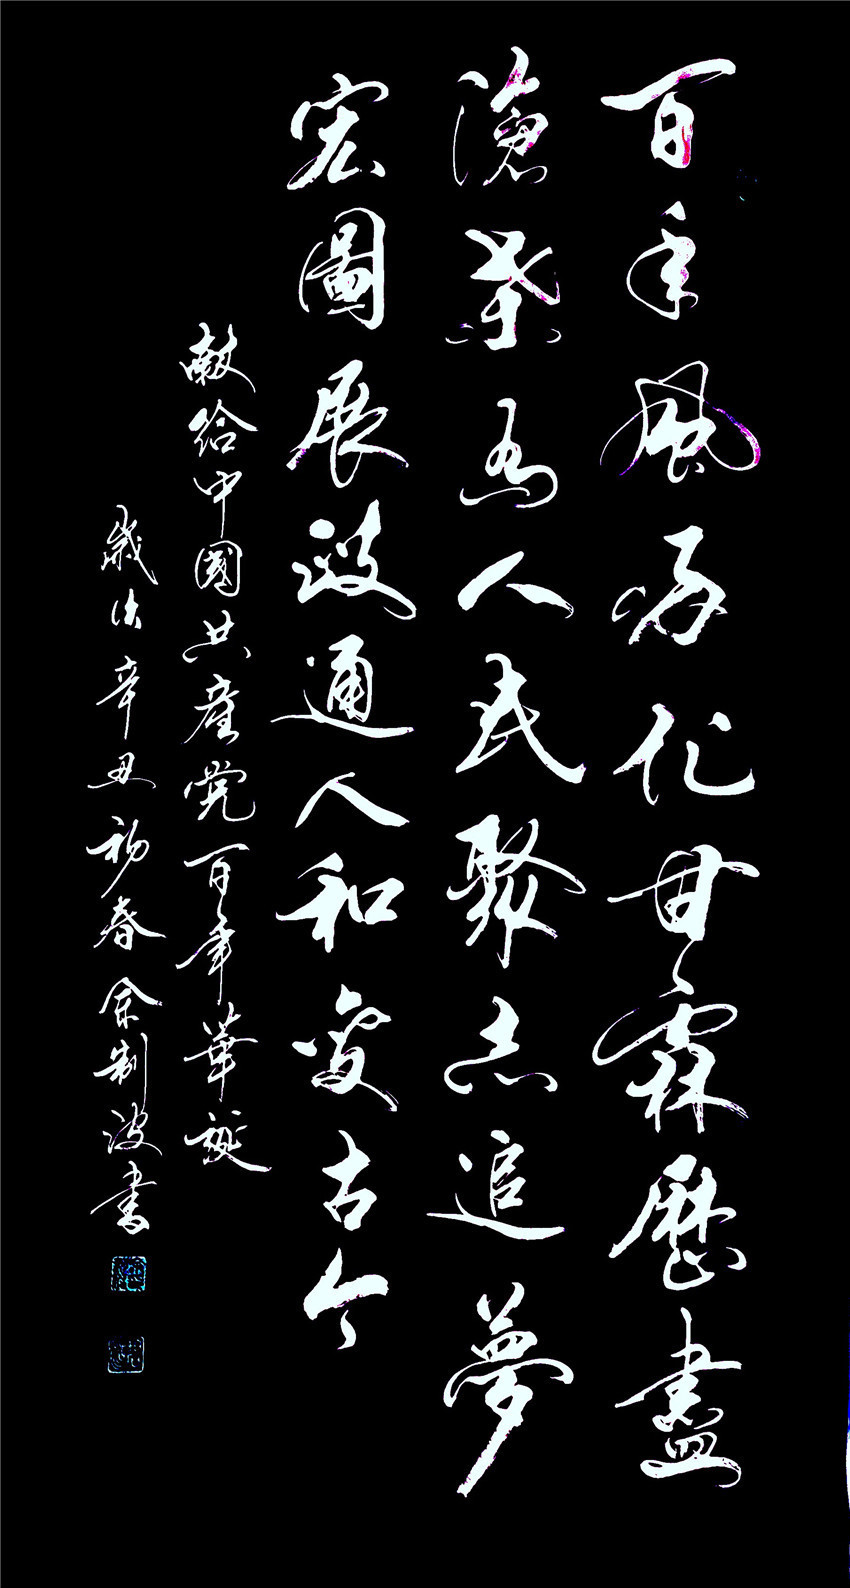 百年風雨化甘霖歷盡
滄桑為人民聚志追夢
宏圖展政通人和變古今
獻給中國共產黨百年華誕
歲次辛丑初春余制波書